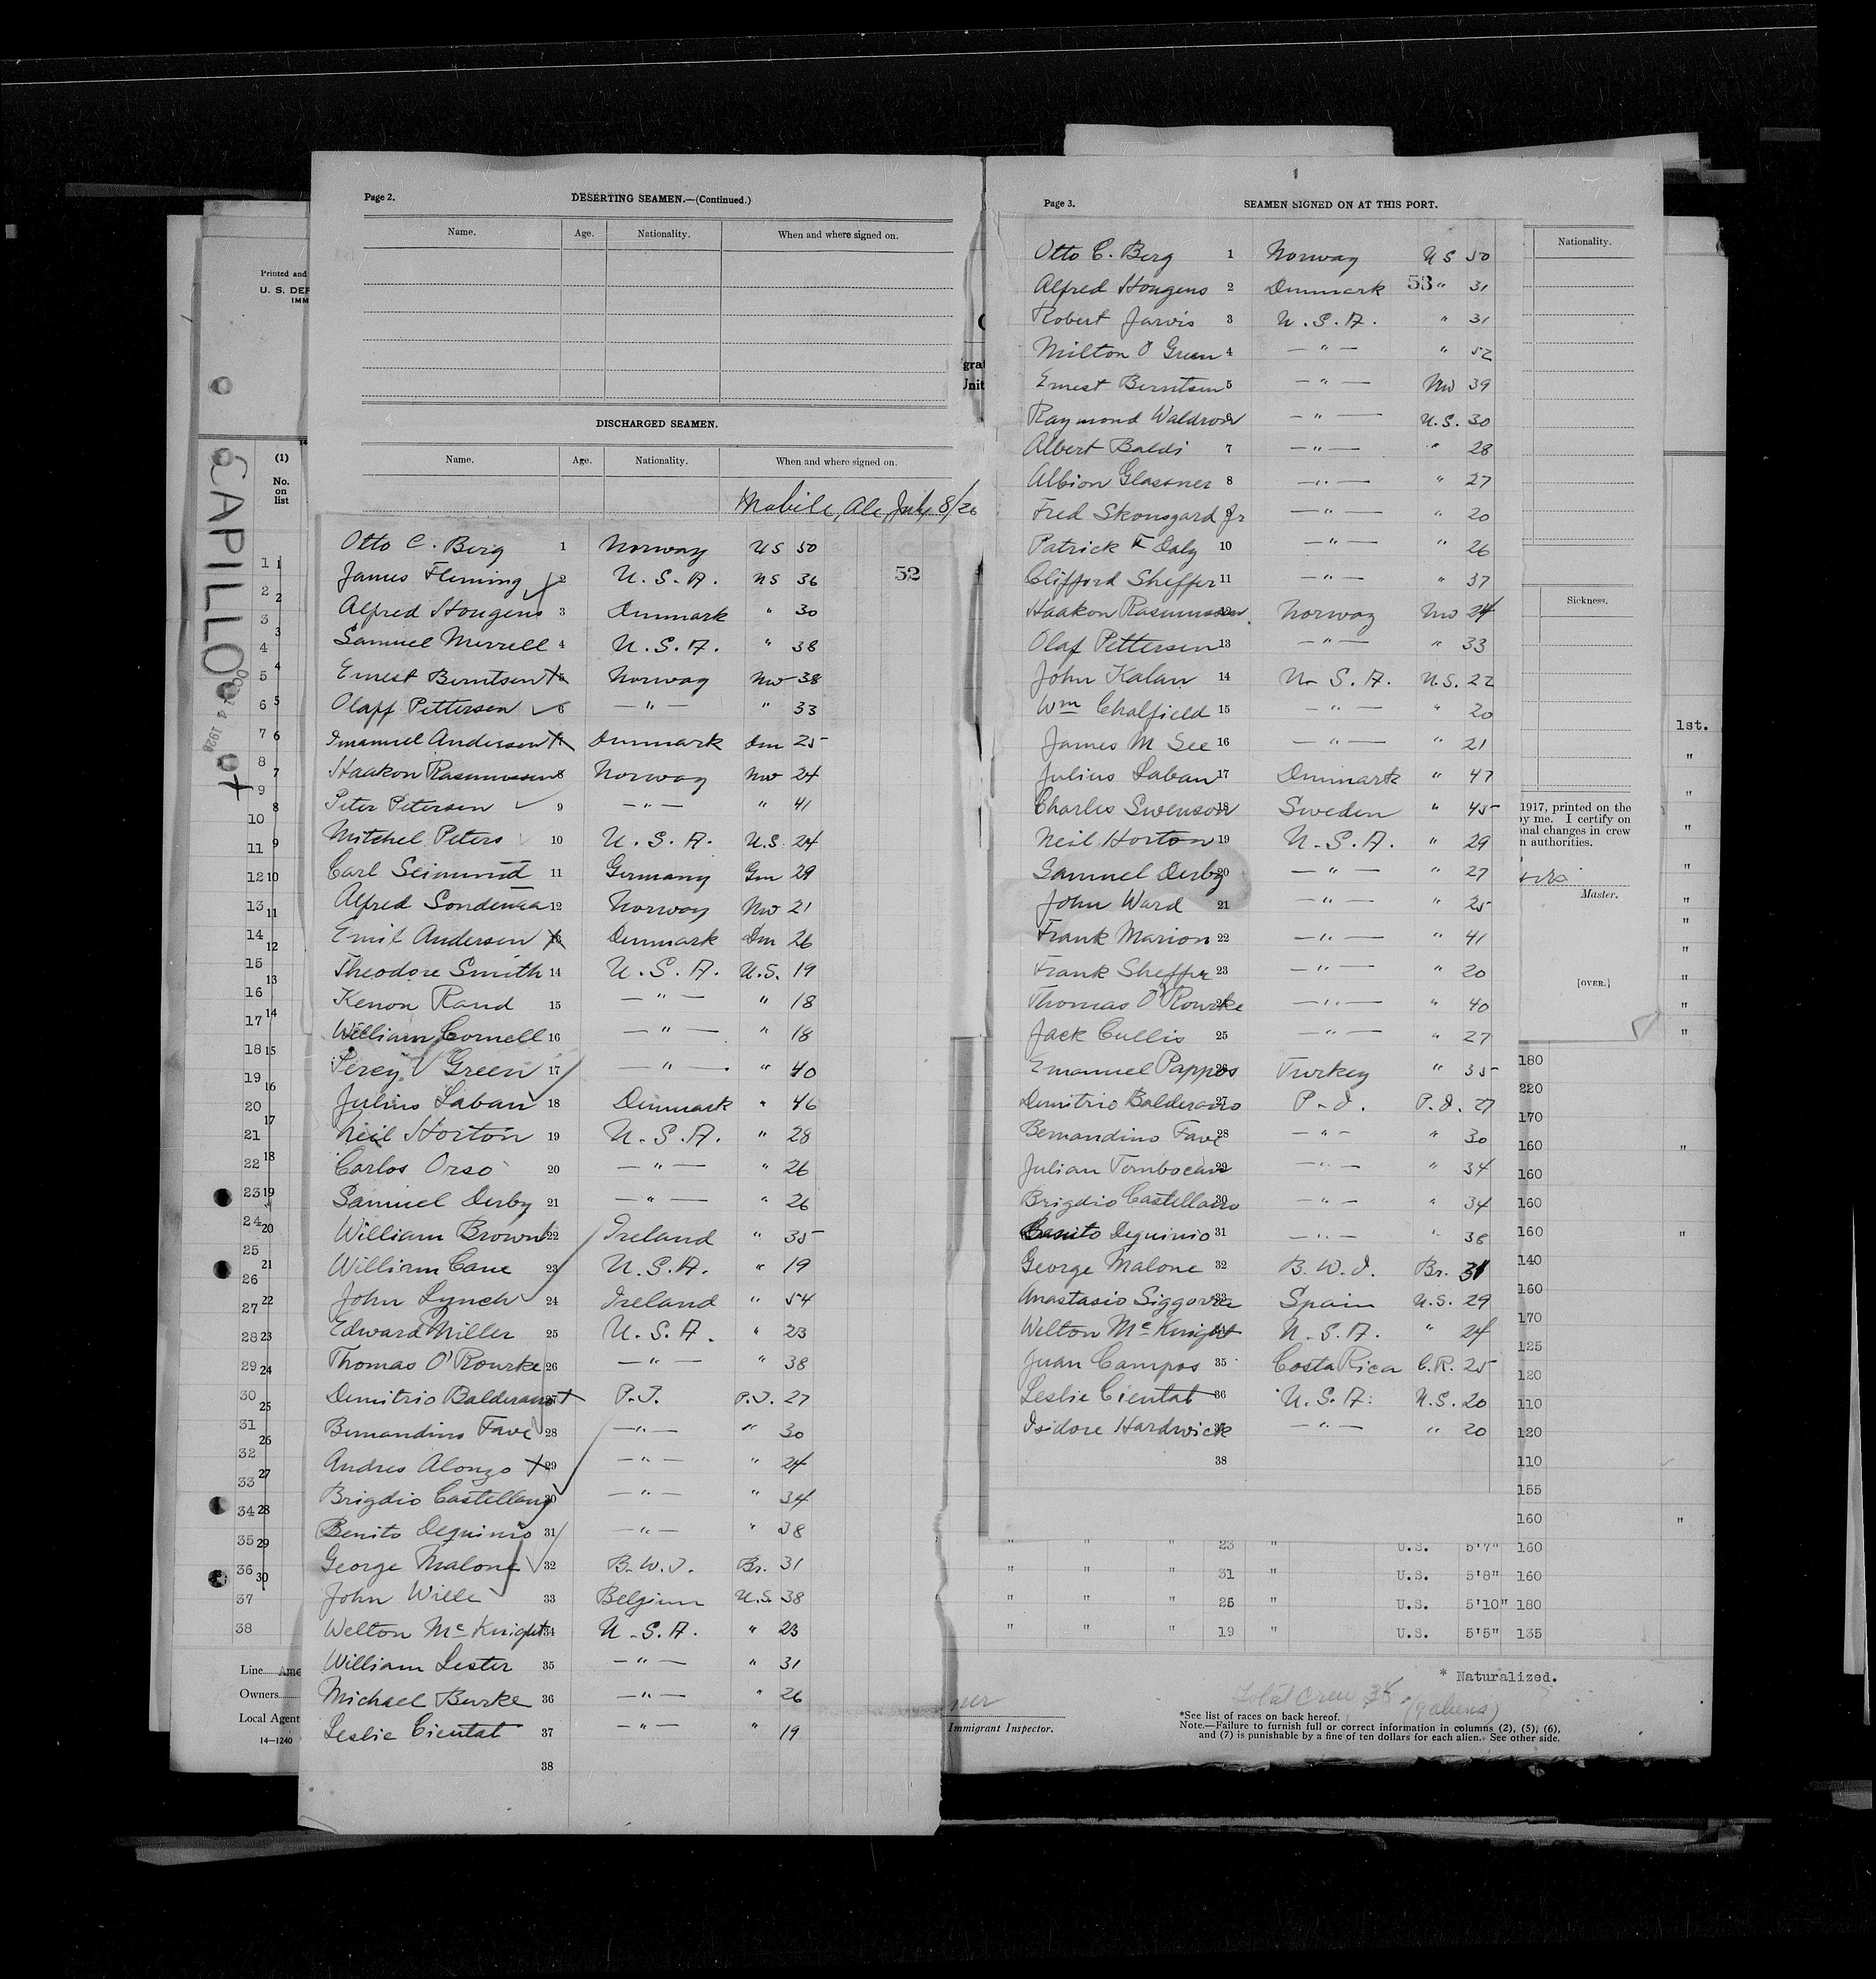 Page 2. DESERTING SEAMEN.—(Continued.)
Name. Age. Nationality. When and where signed on.
DISCHARGED SEAMEN.
Name. Age. Nationality. When and where signed on.
Mobile, Ala, July 8/26
Otto C. Berg 1 Norway US 50
52
James Fleming 2 U.S.A. US 36
Alfred Hougens 3 Denmark " 30
Samuel Merrell 4 U.S.A. " 38
Ernest Berntsen 5 Norway Nw 38
Olaff Pettersen 6 — " — " 33
Imanuel Andersen 7 Denmark Dm 25
Haakon Rasmussen 8 Norway Nw 24
Peter Petersen 9 — " — " 41
Mitchel Peters 10 U.S.A. U.S. 24
Carl Seimund 11 Germany Gm 29
Alfred Sondenaa 12 Norway Nw 21
Emil Andersen 13 Denmark Dm 26
Theodore Smith 14 U.S.A. U.S. 19
Kenon Rand 15 — " — " 18
William Cornell 16 — " — " 18
Percy V Green 17 — " — " 40
Julius Laban 18 Denmark " 46
Neil Horton 19 U.S.A. " 28
Carlos Orso 20 — " — " 26
Samuel Derby 21 — " — " 26
William Brown 22 Ireland " 35
William Cane 23 U.S.A. " 19
John Lynch 24 Ireland " 54
Edward Miller 25 U.S.A. " 23
Thomas O'Rourke 26 — " — " 38
Demitrio Balderano 27 P.I. P.I. 27
Bernandino Fave 28 — " — " 30
Andres Alonzo 29 — " — " 24
Brigdio Castellano 30 — " — " 34
Benito Dequinio 31 — " — " 38
George Malone 32 B.W.I. Br. 31
John Wille 33 Belgium U.S. 38
Welton McKnight 34 U.S.A. " 23
William Lester 35 — " — " 31
Michael Burke 36 — " — " 26
Leslie Cientat 37 — " — " 19
38
Page 3. SEAMEN SIGNED ON AT THIS PORT.
Otto C. Berg 1 Norway US 50
Alfred Hougens 2 Denmark 53 " 31
Robert Jarvis 3 U.S.A. " 31
Milton O Green 4 — " — " 52
Ernest Berntsen 5 — " — Nw 39
Raymond Waldron 6 — " — U.S. 30
Albert Baldi 7 — " — " 28
Albion Glassner 8 — " — " 27
Fred Skonsgard Jr 9 — " — " 20
Patrick F Daly 10 — " — " 26
Clifford Sheffer 11 — " — " 37
Haakon Rasmussen 12 Norway Nw 24
Olaf Pettersen 13 — " — " 33
John Kalan 14 U.S.A. U.S. 22
Wm Chalfield 15 — " — " 20
James M See 16 — " — " 21
Julius Laban 17 Denmark " 47
Charles Swenson 18 Sweden " 45
Neil Horton 19 U.S.A. " 29
Samuel Derby 20 — " — " 27
John Ward 21 — " — " 25
Frank Marion 22 — " — " 41
Frank Sheffer 23 — " — " 20
Thomas O'Rourke 24 — " — " 40
Jack Cullis 25 — " — " 27
Emanuel Pappos 26 Turkey " 35
Demitrio Balderano 27 P.I. P.I. 27
Bernandino Fave 28 — " — " 30
Julian Tombocan 29 — " — " 34
Brigdio Castellano 30 — " — " 34
Benito Dequinio 31 — " — " 38
George Malone 32 B.W.I. Br. 31
Anastasio Siggovia 33 Spain U.S. 29
Welton McKnight 34 U.S.A. " 24
Juan Campos 35 Costa Rica C.R. 25
Leslie Cientat 36 U.S.A. U.S. 20
Isidore Hardwick 37 — " — " 20
38
Nationality.
Sickness.
1917, printed on the
by me. I certify on
onal changes in crew
n authorities.
Master.
[OVER.]
1st.
180
220
170
160
160
160
160
140
160
170
125
120
110
120
110
155
160
" " " 23 " U.S. 5'7" 160
" " " 31 " U.S. 5'8" 160
" " " 25 " U.S. 5'10" 180
" " " 19 " U.S. 5'5" 135
* Naturalized.
Total Crew 38 (9 aliens)
Immigrant Inspector.
*See list of races on back hereof.
Note.—Failure to furnish full or correct information in columns (2), (5), (6),
and (7) is punishable by a fine of ten dollars for each alien. See other side.
Printed and
U. S. DEP
IMM
(1)
No.
on
list
CAPILLO
Line Ame
Owners
Local Agent
14—1240